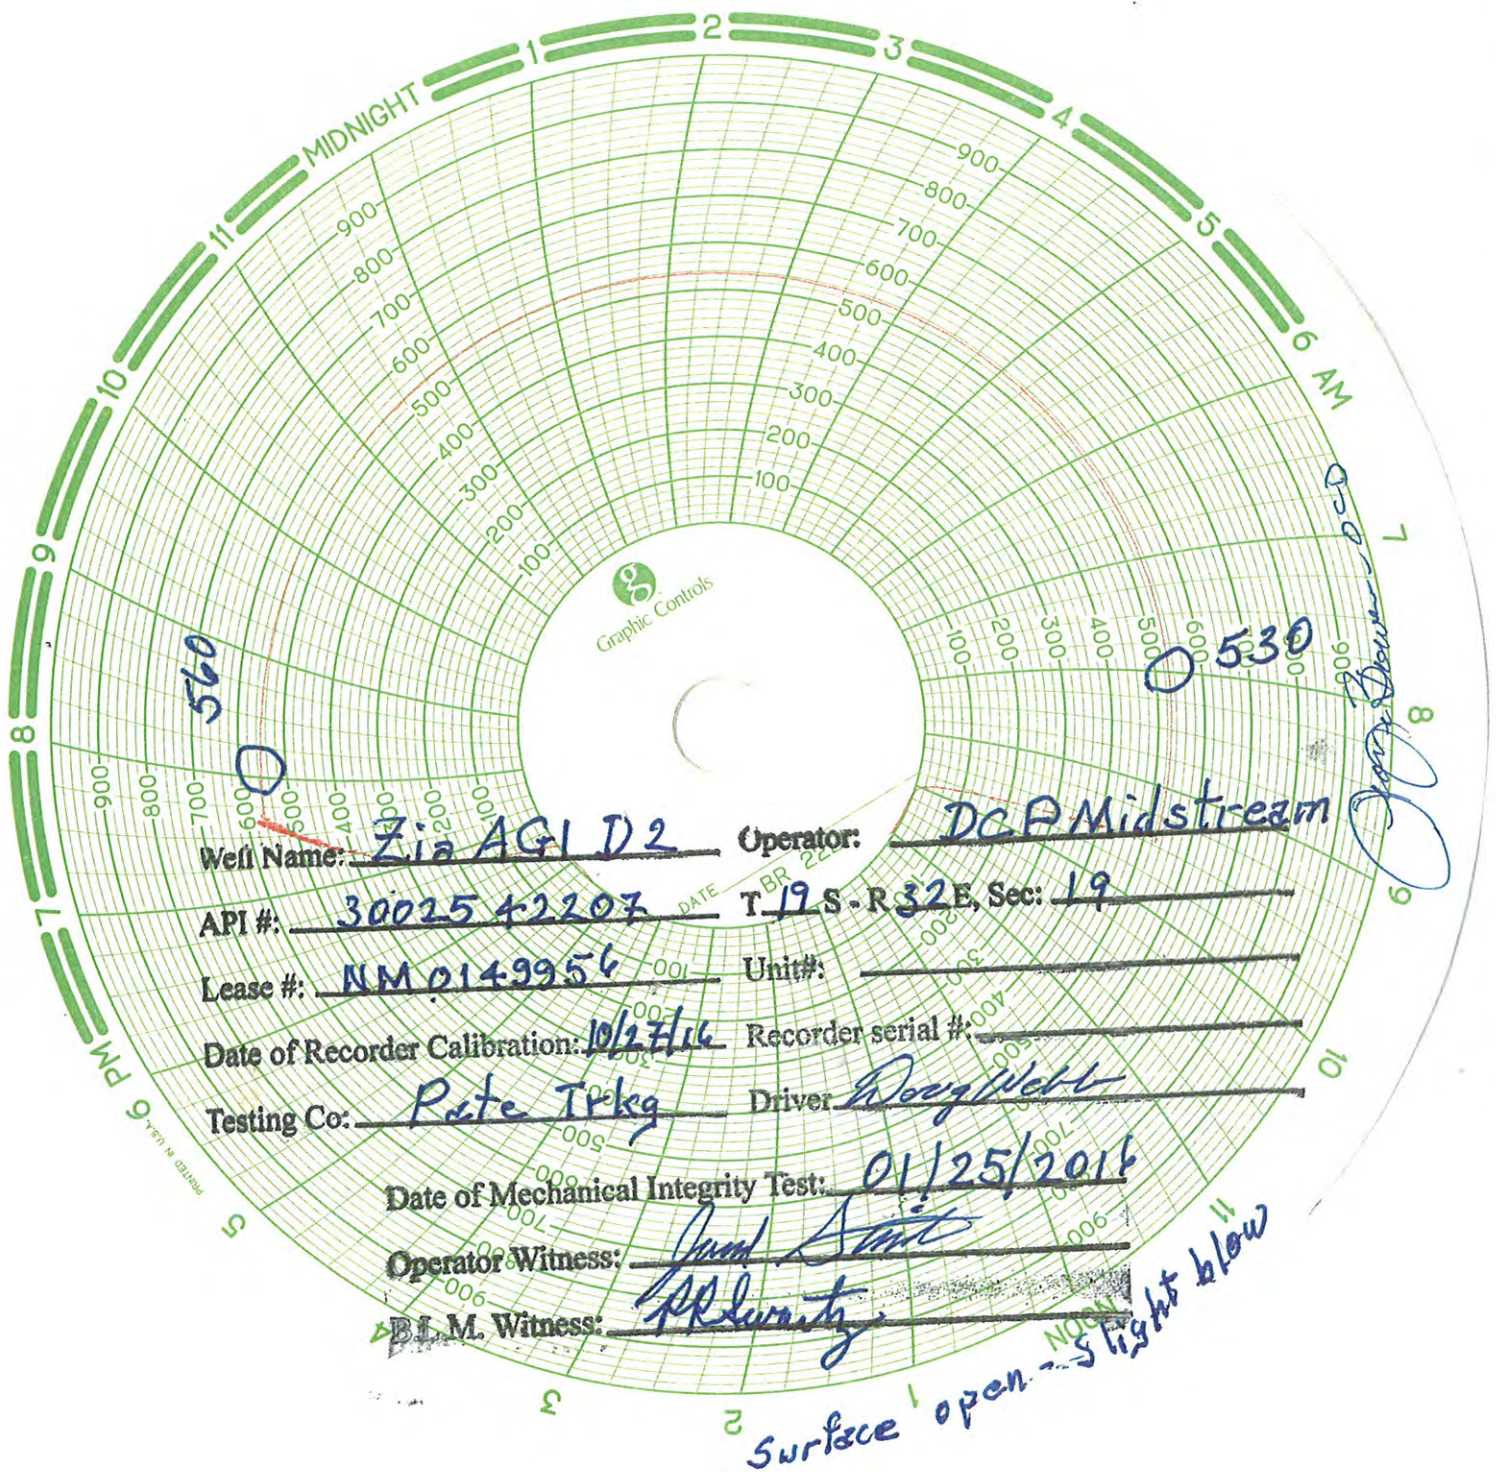 MIDNIGHT
1
2
3
4
5
6 AM
7
8
9
10
11
NOON
1
2
3
4
5
6 PM
7
8
9
10
11
900
800
700
600
500
400
300
200
100
900
800
700
600
500
400
300
200
100
100
200
300
400
500
600
900
900
800
700
600
500
400
200
100
g
Graphic Controls
560
530
OCD
Well Name: Zia AGI D2 Operator: DCP Midstream
DATE
BR 22
API #: 30025 42207 T 19 S - R 32 E, Sec: 19
Lease #: NM 0149956 Unit#:
Date of Recorder Calibration: 10/27/16 Recorder serial #:
Testing Co: Pate Trkg Driver Doug Webb
Date of Mechanical Integrity Test: 01/25/2016
Operator Witness:
B.L.M. Witness:
PRINTED IN U.S.A.
Surface open - slight blow